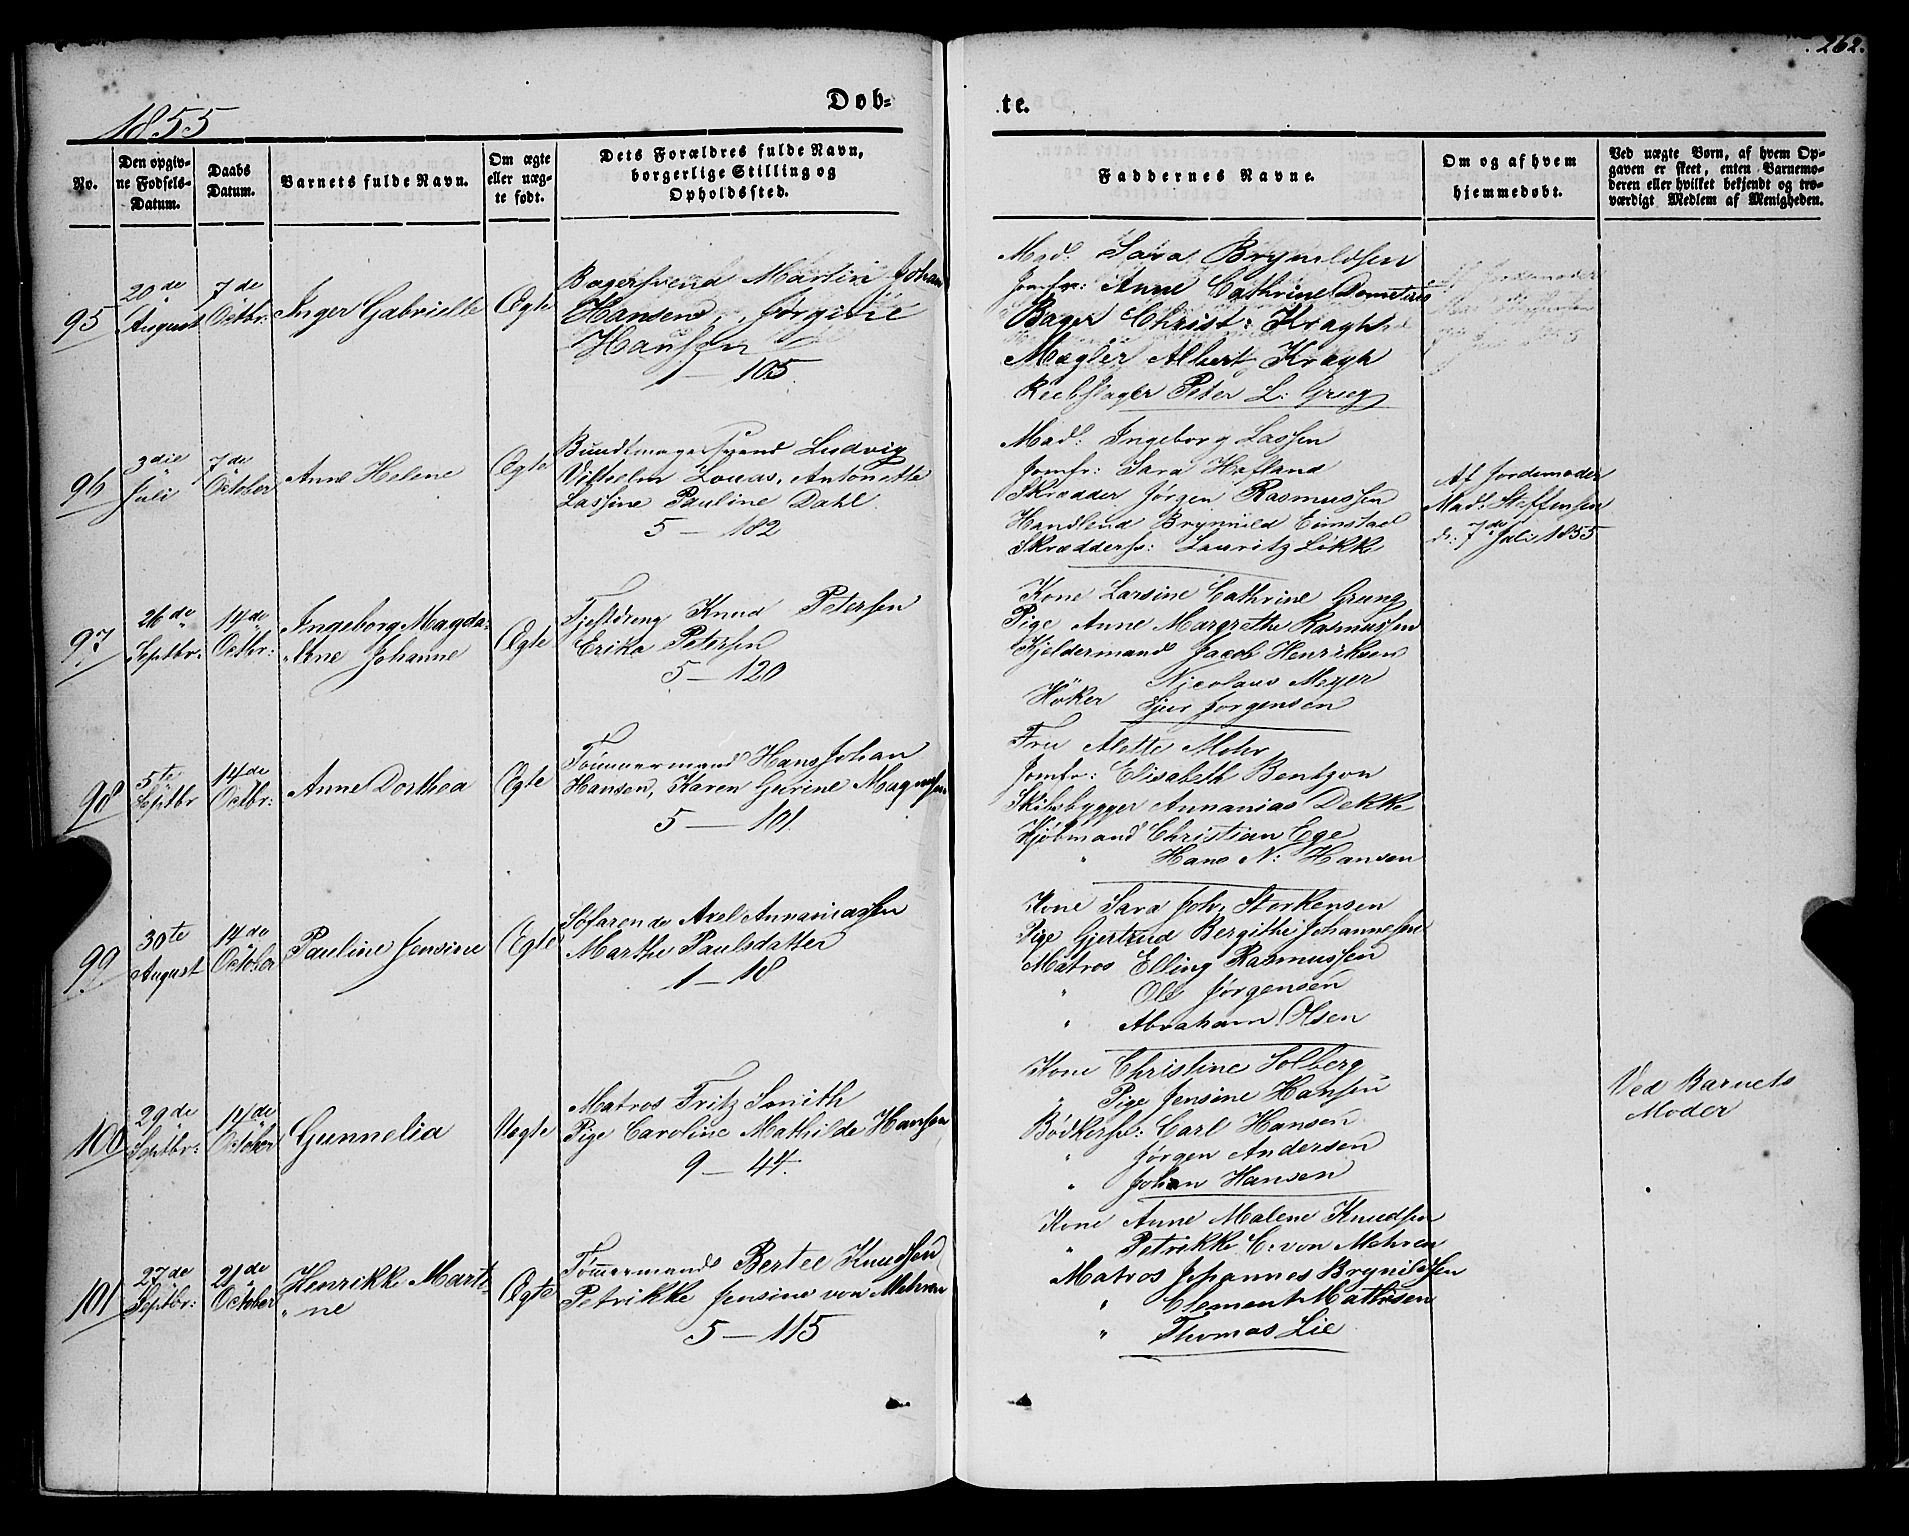 262.
1855
Døb-
te.
No.
Den opgiv-
ne Fødsels-
Datum.
Daabs
Datum.
Barnets fulde Navn.
Om ægte
eller uæg-
te født.
Dets Forældres fulde Navn,
borgerlige Stilling og
Opholdssted.
Faddernes Navne.
Om og af hvem
hjemmedøbt.
Ved uægte Børn, af hvem Op-
gaven er skeet, enten Barnemo-
deren eller hvilket bekjendt og tro-
værdigt Medlem af Menigheden.
95
20de
August
7de
Octbr:
Inger Gabrielle
Ægte
Bagersvend Martin Johan
Hansen,
Hansen
1 — 105.
Mad: Sara Brynildsen
Jomfr: Anne Cathrine
Bager Christ: Kragh
Mægler Albert Kragh
Reebslager Peter L: Grieg
96
3die
Juli
7de
October
Anne Helene
Ægte
Bundtmagersvend Ludvig
Vilhelm Loucas, Antonette
Lassine Pauline Dahl.
5 — 182
Mad: Ingeborg Lassen
Jomfr: Sara Hafland
Skrædder Jørgen Rasmussen
Handlend Brynild Eimstad
Skrædders: Lauritz Løkke
Af Jordemoder
Mad. Steffensen
d: 7de Juli 1855
97
26de
Septbr:
14de
Octbr:
Ingeborg Magda-
lene Johanne
Ægte
Knud Petersen
Erika Petersen
5 — 120
Kone Larsine Cathrine Grung
Pige Anne Margrethe Rasmussen
Kjeldermand Jacob Henriksen
Nicolaus Meyer
Höker Sjur Jørgensen
98
5te
Septbr
14de
Octbr:
Anne Dorthea
Ægte
Tömmermand Hans Johan
Hansen, Karen Gurine Magnussen
5 — 101.
Fru Alette Mohr
Jomfr: Elisabeth Bentzon
Skibsbygger Annanias Dekke
Kjøbmand Christian Ege
" Hans N: Hansen
99
30te
August
14de
October
Pauline Jensine
Ægte
Søfarende Axel Annaniassen
Marthe Paulsdatter
1 — 18
Kone Sara Joh: Storkensen
Pige Gjertrud Bergithe Johannesen
Matros Elling Rasmussen
" Ole Jørgensen
" Abraham Olsen
100
29de
Septbr:
14de
October
Gunnelia
Uægte
Matros Fritz Smith
Pige Caroline Mathilde Hansen
9 — 44.
Kone Christine Solberg
" Pige Jensine Hansen
Bødkers: Carl Hansen
" Jørgen Andersen
" Johan Hansen
Ved Barnets
Moder
101
27de
Septbr:
21de
October
Henrikke Marti-
ne
Ægte
Tömmermand Bertel Knudsen
Petrikke Jensine von Mehren
5 — 115
Kone Anne Malene Knudsen
" Petrikke C: von Mehren
Matros Johannes Brynildsen
" Clement Mathisen
" Thomas Lie